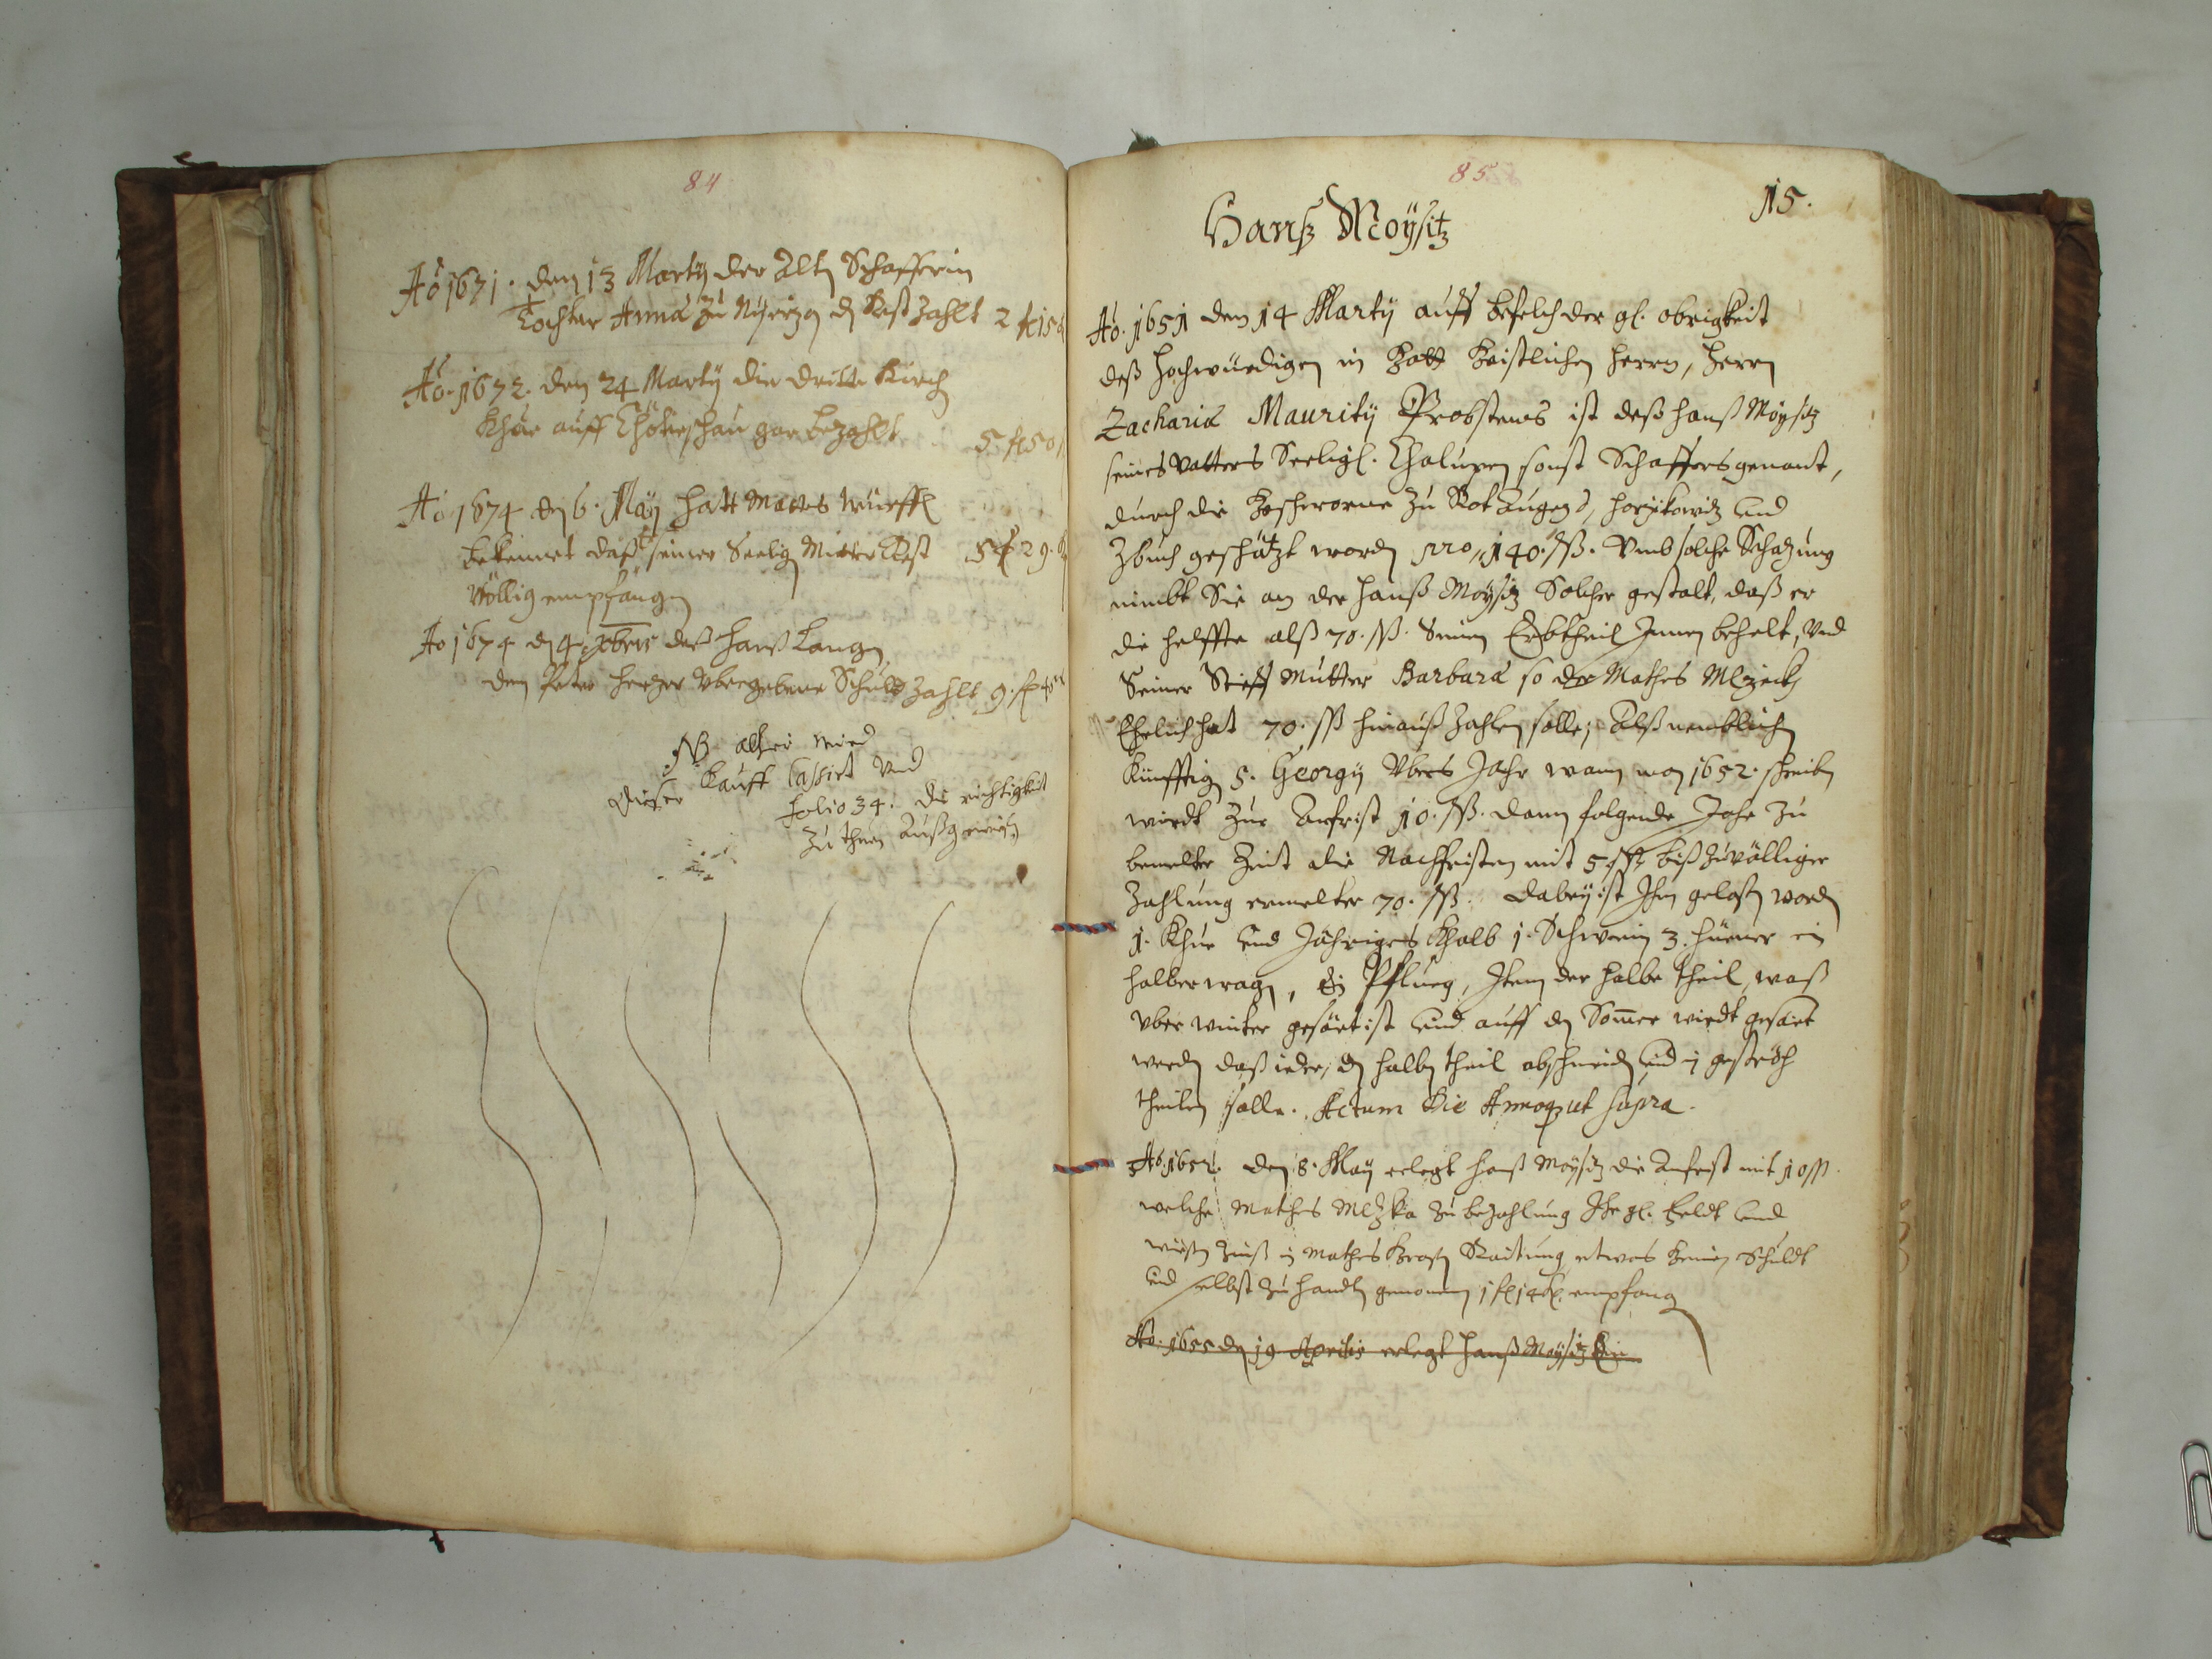 84
Ao 1671. den 13 Martij der Alten Schafferin
Tochter Anna zu den Rest Zahlt 2 fl 15
Ao. 1672. den 24 Martij die dritte Kirch
Khue auff Chotieschau gar bezahlt 5 fl 50
Ao 1674 den 6. May hatt Mattes Würffl
bekennet daß seiner Seelig Mutter Rest 5 fl 29.
Völlig empfangen
Ao 1674 den 4 xbris deß Hanß Langen
dem Peter Herger Vbergebene Schuldt Zahlt 9. fl
NB alhier wird
Dieser Kauff Cassirt Vnd
folio 34. die richtigkeit
zu thun außgewisen
85
15.
Hanß Moysitz
Ao. 1651 den 14 Martij auff befelch der gl. obrigkeit
deß Hochwürdigen in Gott Geistlichen Herrn, Herrn
Zachariæ Mauritij Probstens ist deß Hanß Moysitz
seines Vatters Seeligl. Chalupen sonst Schaffers genant,
durch die Geschworne zu Rot Augezd, Horzikowitz und
Zbuch geschätzt worden pro 140. ßß. Vmb solche Schazung
nimbt Sie an der Hanß Moysitz Solcher gestalt, daß er
die helffte alß 70. ßß. Seinen Erbtheil Innen behelt, Vnd
Seiner Stieff Mutter Barbara so der Mathes Mlzeck
Ehelich hat 70. ßß hinauß Zahlen solle; Alß nemblichen
Künfftig S. Georgij Vbers Jahr wann man 1652. schreiben
wirdt zur Anfrist 10. ßß. dann folgende Jahr zu
bemelter Zeit die Nachfristen mit 5 ßß biß zu völliger
Zahlung ermelter 70. ßß. Dabey ist Ihm gelasen worden
1. Khue und Jähriges Khalb 1. Schwein 3. Hüener ein
halber wagen, Ein Pflueg, Item der halbe theil, waß
vber winter gesäet ist und auff den Sommer wirdt gesäet
werden daß ieder, den halben theil abschneiden und in gestrüh
theilen solle. Actum die Annoq ut supra.
Ao. 1652. den 8. May erlegt Hanß Moysitz die Anfrist mit 10 ßß.
welche Mathes Mlzka zu bezahlung Ihr gl. Geldt und
Zinß in Mathes Raitung etwas Schuldt
und selbst zu handen genommen 1 fl 14 empfang
Ao. 1655 den 19 Aprilis erlegt Hanß Moysitz Ein